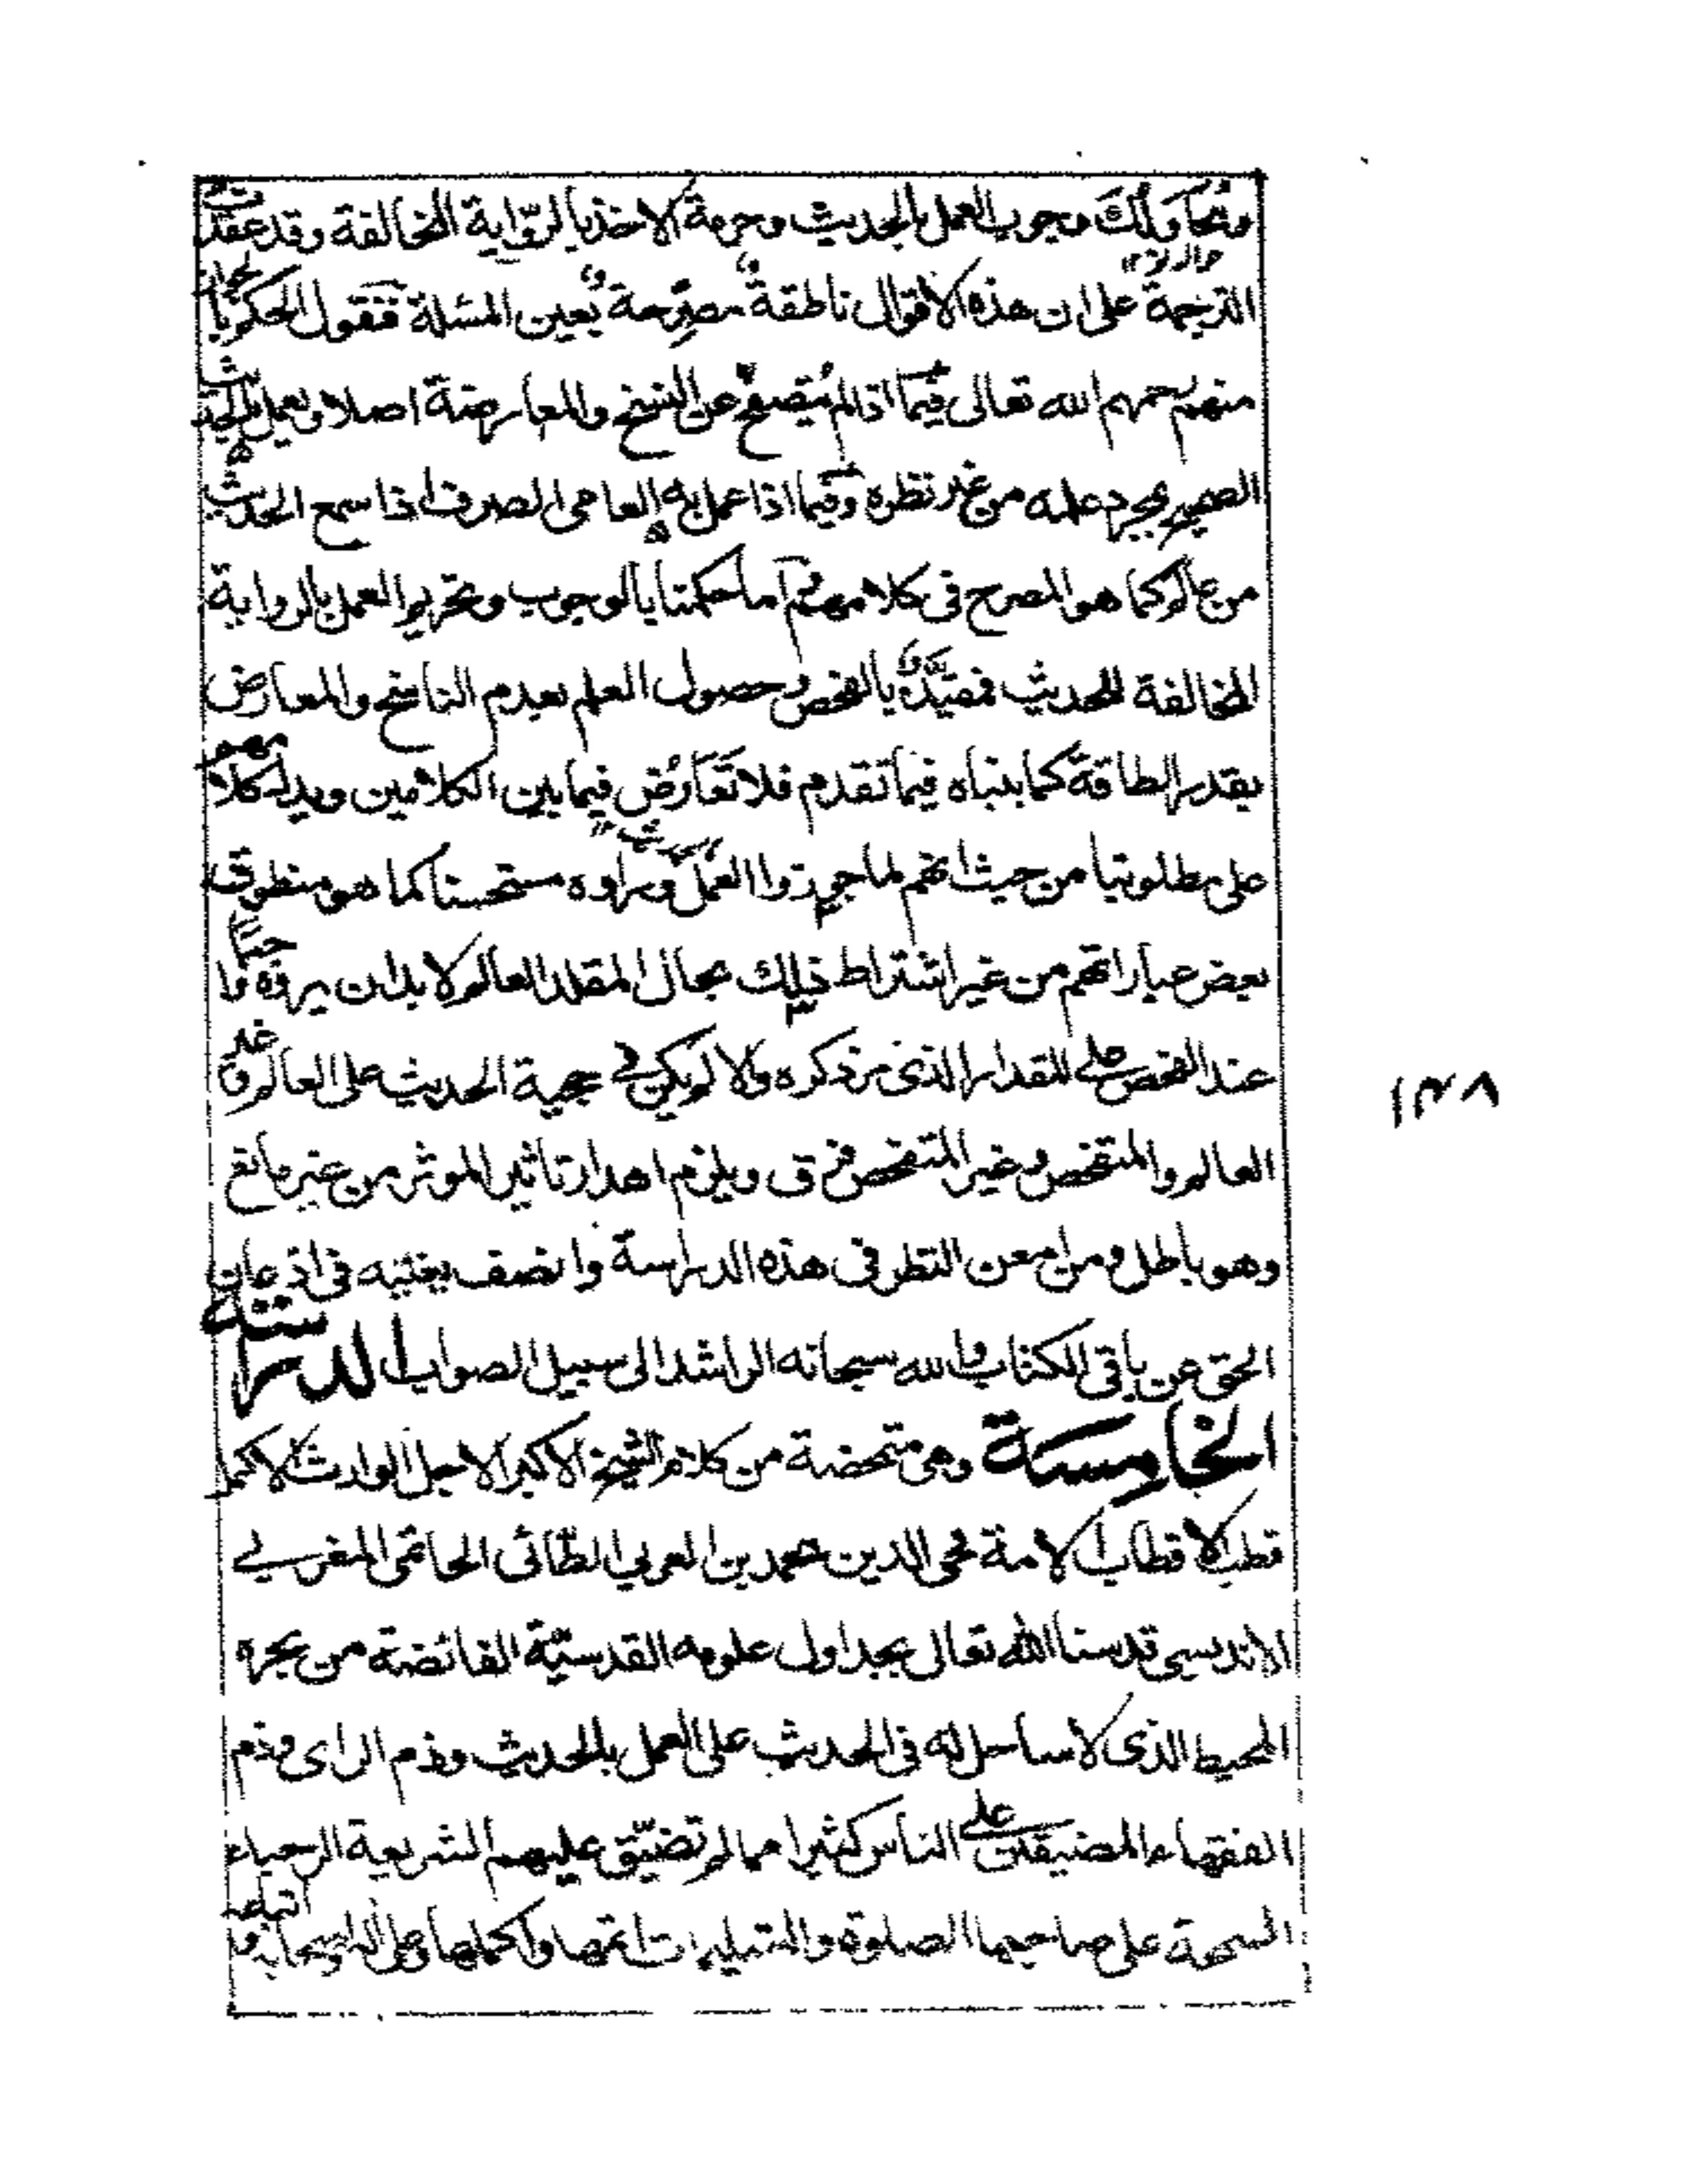 ومحاولك وجوب العمل بالحديث وحرمة الاخذ بالرّواية المخالفة وقد عقدت
الترجمة على ان هذه الاقوال ناطقة مصرّحة بعين المسئلة فنقول الحكم بالجواز
منهم رحمهم الله تعالى فيما اذا لم يتصفح عن النسخ والمعارضة اصلا ويعمل بالحديث
الصحيح بمجرد علمه من غير نظره وفيما اذا عمل به العامى الصرف اذا سمع الحديث
من عالم كما هو المصرح فى كلامهم اما حكمنا بالوجوب وتحريم العمل بالرواية
المخالفة للحديث فمقيد بالفحص وحصول العلم بعدم الناسخ والمعارض
بقدر الطاقة كما بنياه فيما تقدم فلا تعارُض فيما بين الكلامين ويدل كلامهم
على مطلوبنا من حيث انهم لما جوزوا العمل وراوه مستحسنا كما هو منطوق
بعض عباراتهم من غير اشتراط ذلك بحال المقلد العالم لا بد ان يروه واجبًا
عند الفحص على المقدار الذى نذكره والا لم يكن فى حجية الحديث على العالم وغير
العالم والمتفحص وغير المتفحص فرق ويلزم اهدار تاثير الموثر من غير مانع
وهو باطل ومن امعن النظر فى هذه الدراسة وانصف يغنيه فى اذعان
الحق عن باقى الكتاب والله سبحانه الراشد الى سبيل الصواب الدراسة
الخامسة وهى متحضة من كلام الشيخ الاكبر الاجل الوارث الاكمل
قطب الاقطاب الامة محى الدين محمد بن العربي الطّائى الحاتمى المغربي
الاندلسى قدسنا الله تعالى بجداول علومه القدسيّة الفائضة من بحره
المحيط الذى لا ساحل له فى الحديث على العمل بالحديث وذم الراى وذم
الفقهاء المضيقين على الناس كثيرا مما لم تضيّق عليهم الشريعة الرحباء
السمحة على صاحبها الصلوة والتسليمات اتمها واكملها وعلى اله وصحابه واتباعه
١٣٨